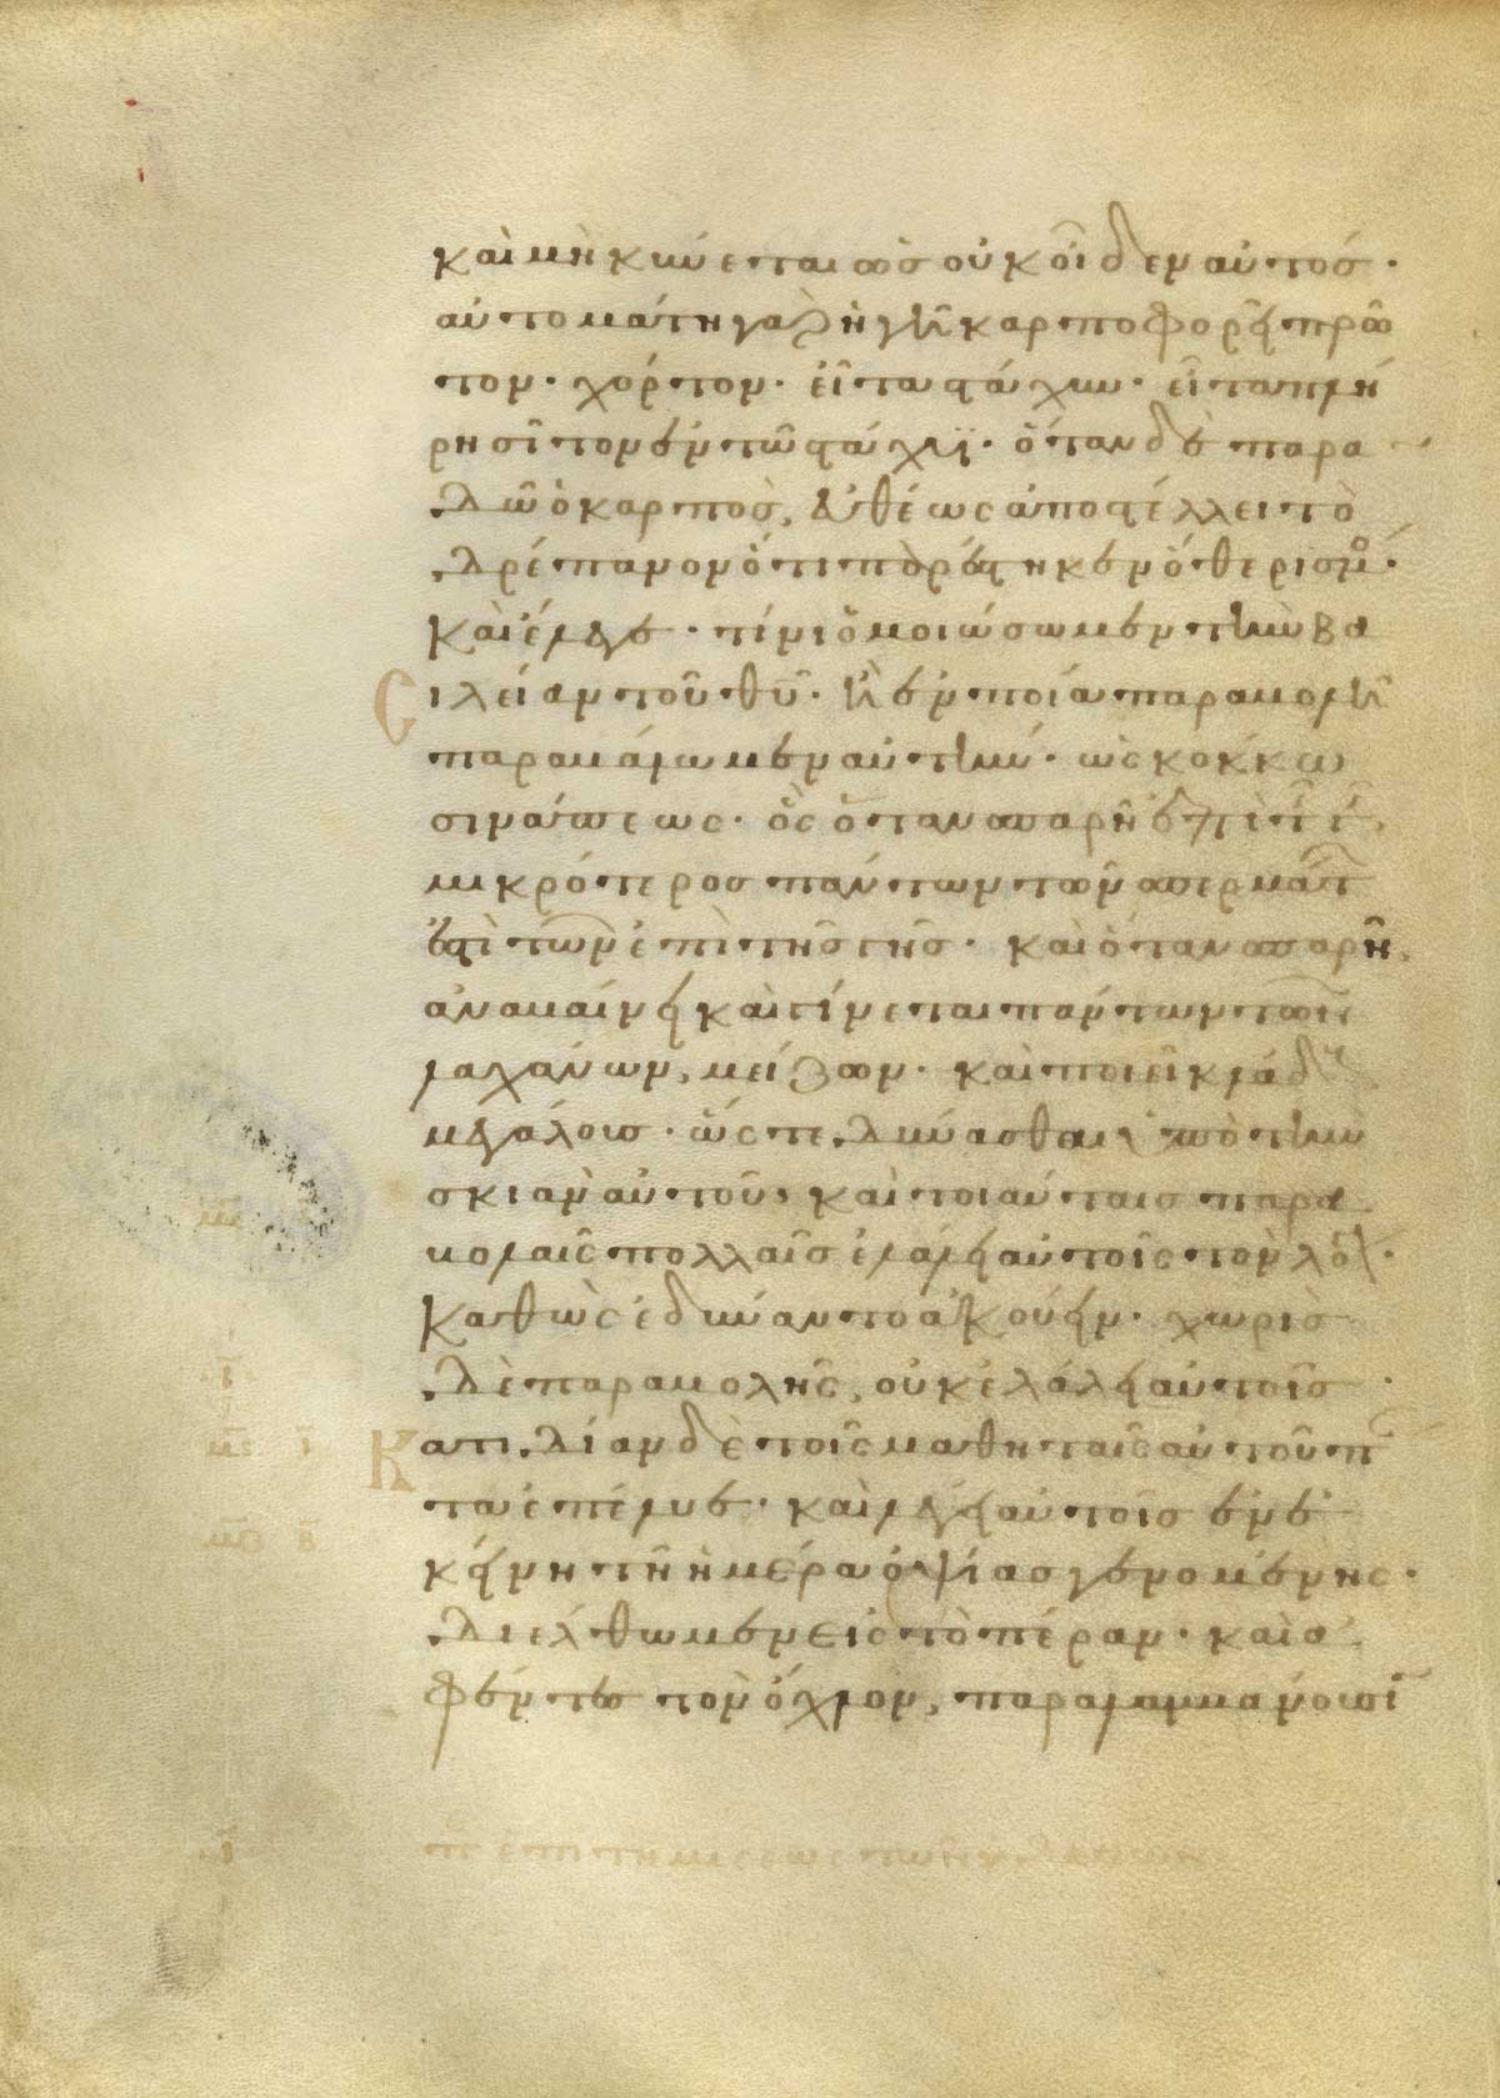 καὶ μηκύνεται ὡσ οὐκ οἶδεν αὐτόσ·
αὐτομάτη γὰρ ἡ γῆ καρποφορεῖ πρῶ
τον· χόρτον· εἶτα στάχυν· εἶτα πλή
ρη σῖτον ἐν τῶ στάχυϊ· ὅταν δὲ παρα
δῶ ὁ καρπὸσ, εὐθέως ἀποστέλλει τὸ
δρέπανον ὅτι παρέστηκεν ὁ θερισμο·
Καὶ ἔλεγε· τίνι ὁμοιώσωμεν τὴν βα
σιλείαν τοῦ θυ· ἢ ἐν ποία παραβολῆ
παραβάλωμεν αὐτήν· ὡς κόκκω
σινάπεως· ὃς ὅταν σπαρῆ ἐπὶ τ γ
μικρότεροσ πάντων τῶν σπερμάτ
ἐστὶ τῶν ἐπὶ τῆσ γῆσ· καὶ ὅταν σπαρῆ,
ἀναβαίνει καὶ γίνεται πάντων τῶν
λαχάνων, μείζων· καὶ ποιεῖ κλάδ
μεγάλουσ· ὥςτε δύνασθαι ὑπὸ τὴν
σκιὰν αὐτοῦ· καὶ τοιαύταισ παρα
βολαῖς πολλαῖσ ἐλάλει αὐτοῖς τὸν λό·
Καθὼς ἐδύναντο ἀκούειν· χωρὶσ
δὲ παραβολῆς, οὐκ ἐλάλει αὐτοῖσ
Κατιδίαν δὲ τοῖς μαθηταῖς αὐτοῦ π
τα ἐπέλυε· καὶ λέγει αὐτοῖσ ἐν ἐ
κείνη τῆ ἡμέρα ὀψίασ γενομένης·
διέλθωμεν εἰς τὸ πέραν· καὶ α
φέντεσ τὸν ὄχλον, παραλαμβάνουσι